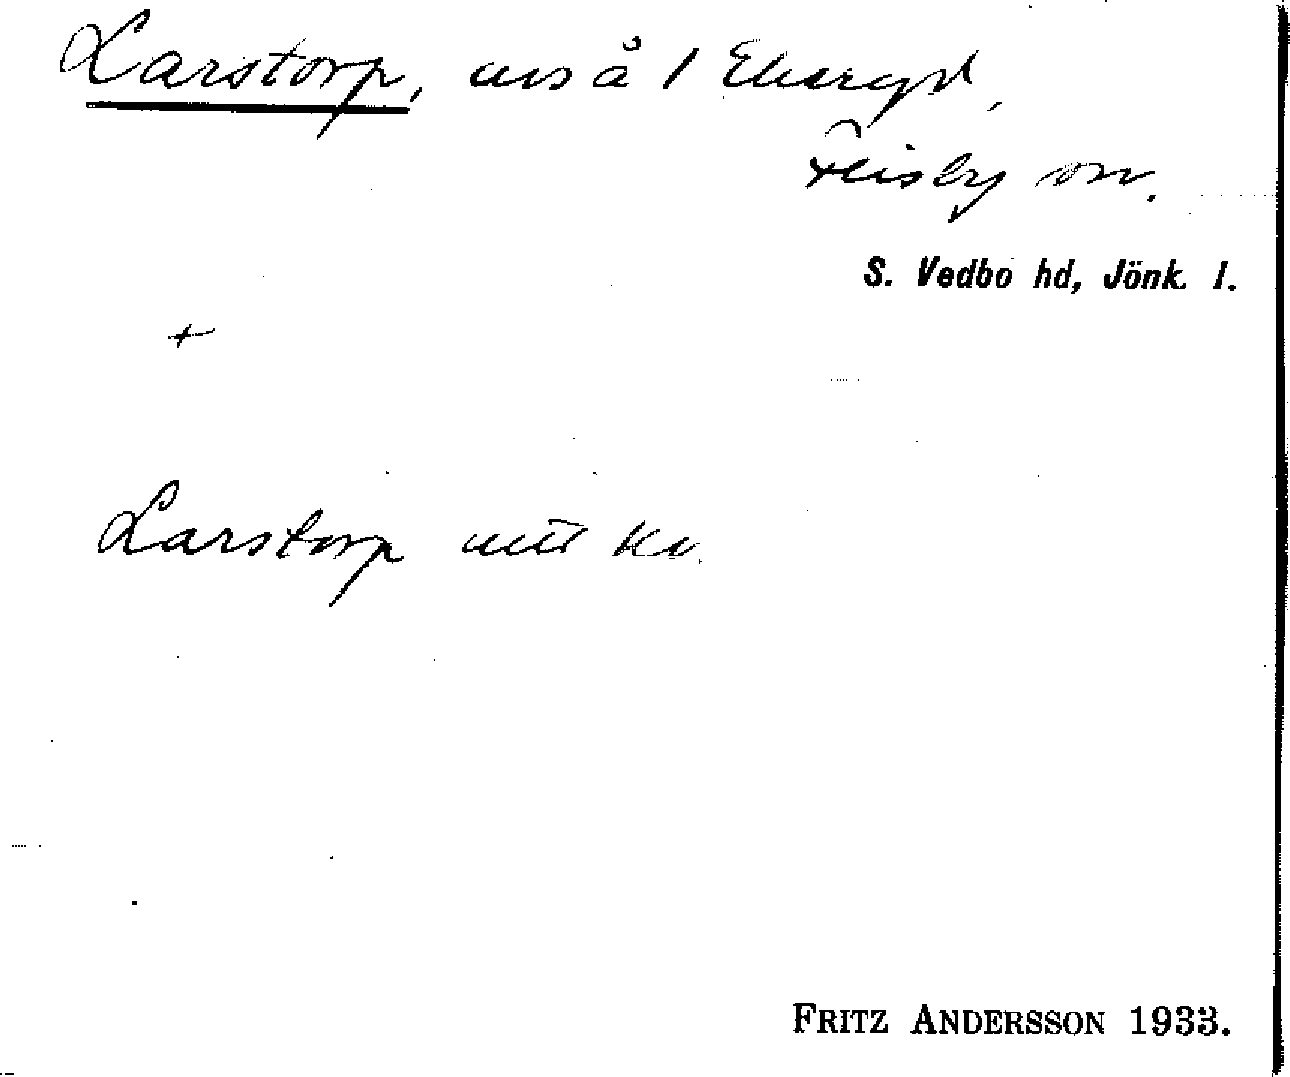 Larstorp, urs å 1 Ekaryd,
Flisby sn.
S. Vedbo hd, Jönk. l.
+
Larstorp utt kv.
FRITZ ANDERSSON 1933.